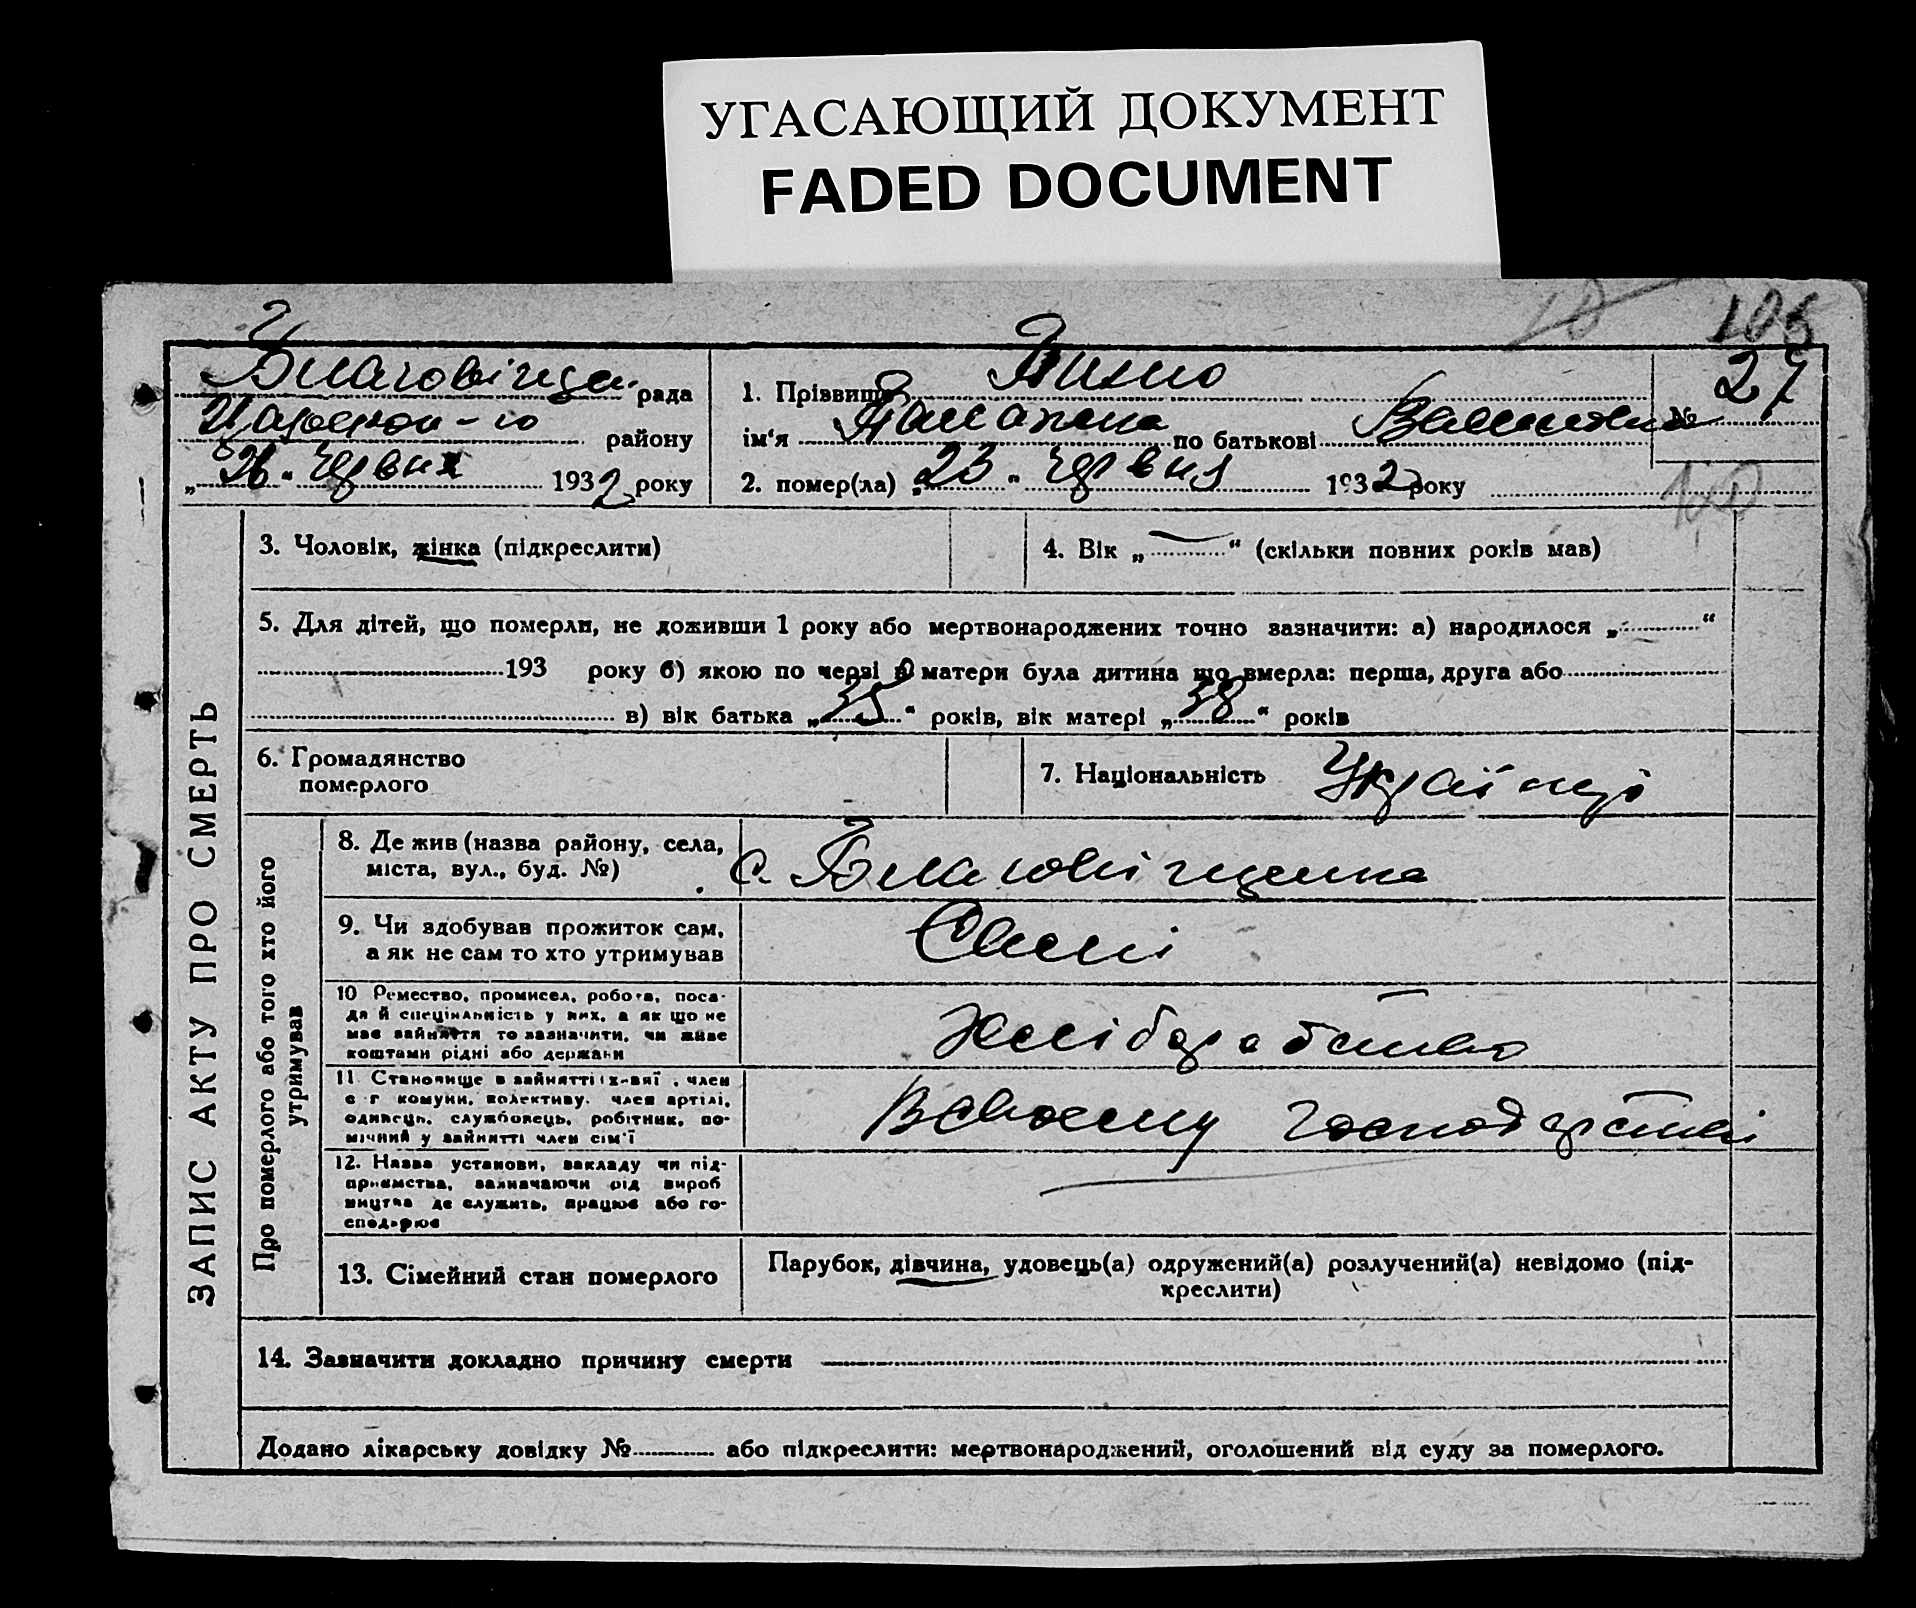 УГАСАЮЩИЙ ДОКУМЕНТ
FADED DOCUMENT
105
27
Благовіщен. рада
району
„26“ Червня 1932 року
1. Прізвище
ім'я по батькові №
2. помер(ла) „23“ Червня 1932 року
100
ЗАПИС АКТУ ПРО СМЕРТЬ
3. Чоловік, жінка (підкреслити)
4. Вік „ — “ (скільки повних років мав)
5. Для дітей, що померли, не доживши 1 року або мертвонароджених точно зазначити: а) народилося „ “
193 року б) якою по черзі в матери була дитина що вмерла: перша, друга або
в) вік батька „35“ років, вік матері „38“ років
6. Громадянство
померлого
7. Національність Українці
Про померлого або того хто його
утримував
8. Де жив (назва району, села,
міста, вул., буд. №)
с. Благовіщенка
9. Чи здобував прожиток сам,
а як не сам то хто утримував
Самі
10 Ремество, промисел, робота, поса-
да й спеціяльність у них, а як що не
має зайняття то зазначити, чи живе
коштами рідні або держави
Хліборобство
11 Становище в зайнятті член
с г комуни, колективу, член артілі,
одинець, службовець, робітник, по-
мічний у зайнятті член сім'ї
В своєму господарстві
12. Назва установи, закладу чи під-
приємства, зазначаючи рід вироб
ництва де служить, працює або го-
сподарює
13. Сімейний стан померлого
Парубок, дівчина, удовець(а) одружений(а) розлучений(а) невідомо (під-
креслити)
14. Зазначити докладно причину смерти
Додано лікарську довідку № або підкреслити: мертвонароджений, оголошений від суду за померлого.